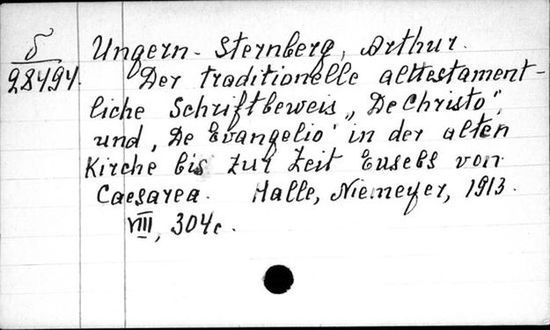 δ
28494.
Ungern-Sternberg, Arthur.
Der traditionelle alttestament-
liche Schriftbeweis „De Christo",
und „De Evangelio" in der alten
Kirche bis zur Zeit Eusebs von
Caesarea. Halle, Niemeyer, 1913.
VIII, 304c.